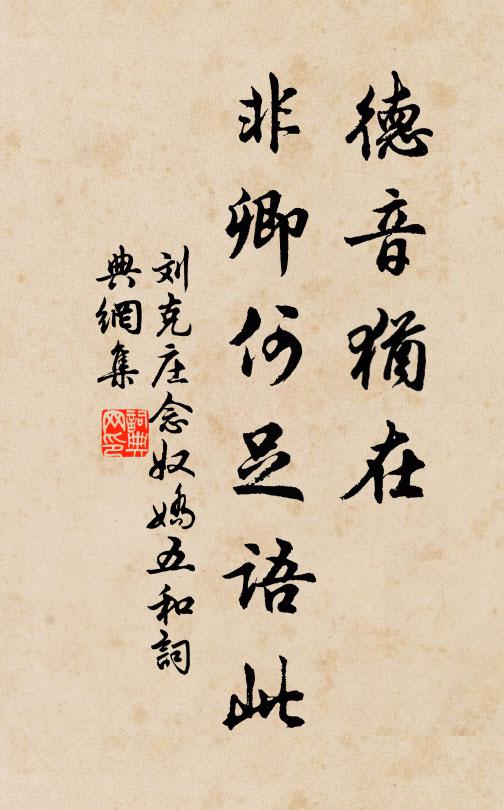 德音猶在
非卿何足語此
刘克庄念奴嬌五和詞
典網集
詞典网印